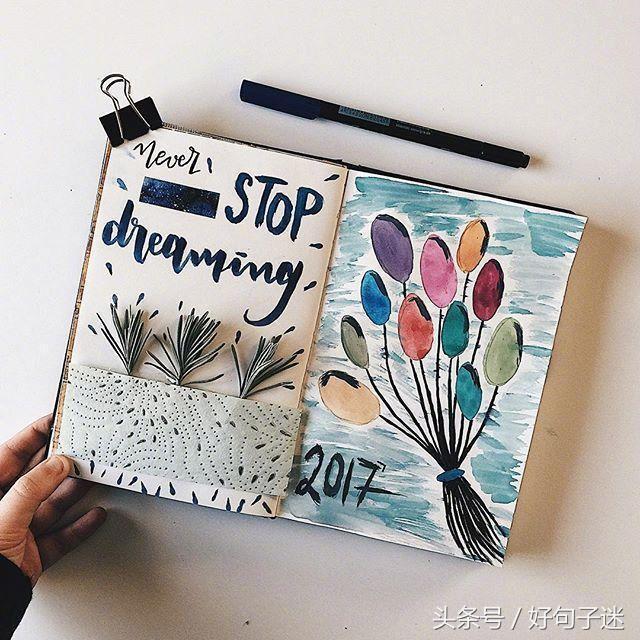 never
STOP
dreaming
2017
头条号 / 好句子迷